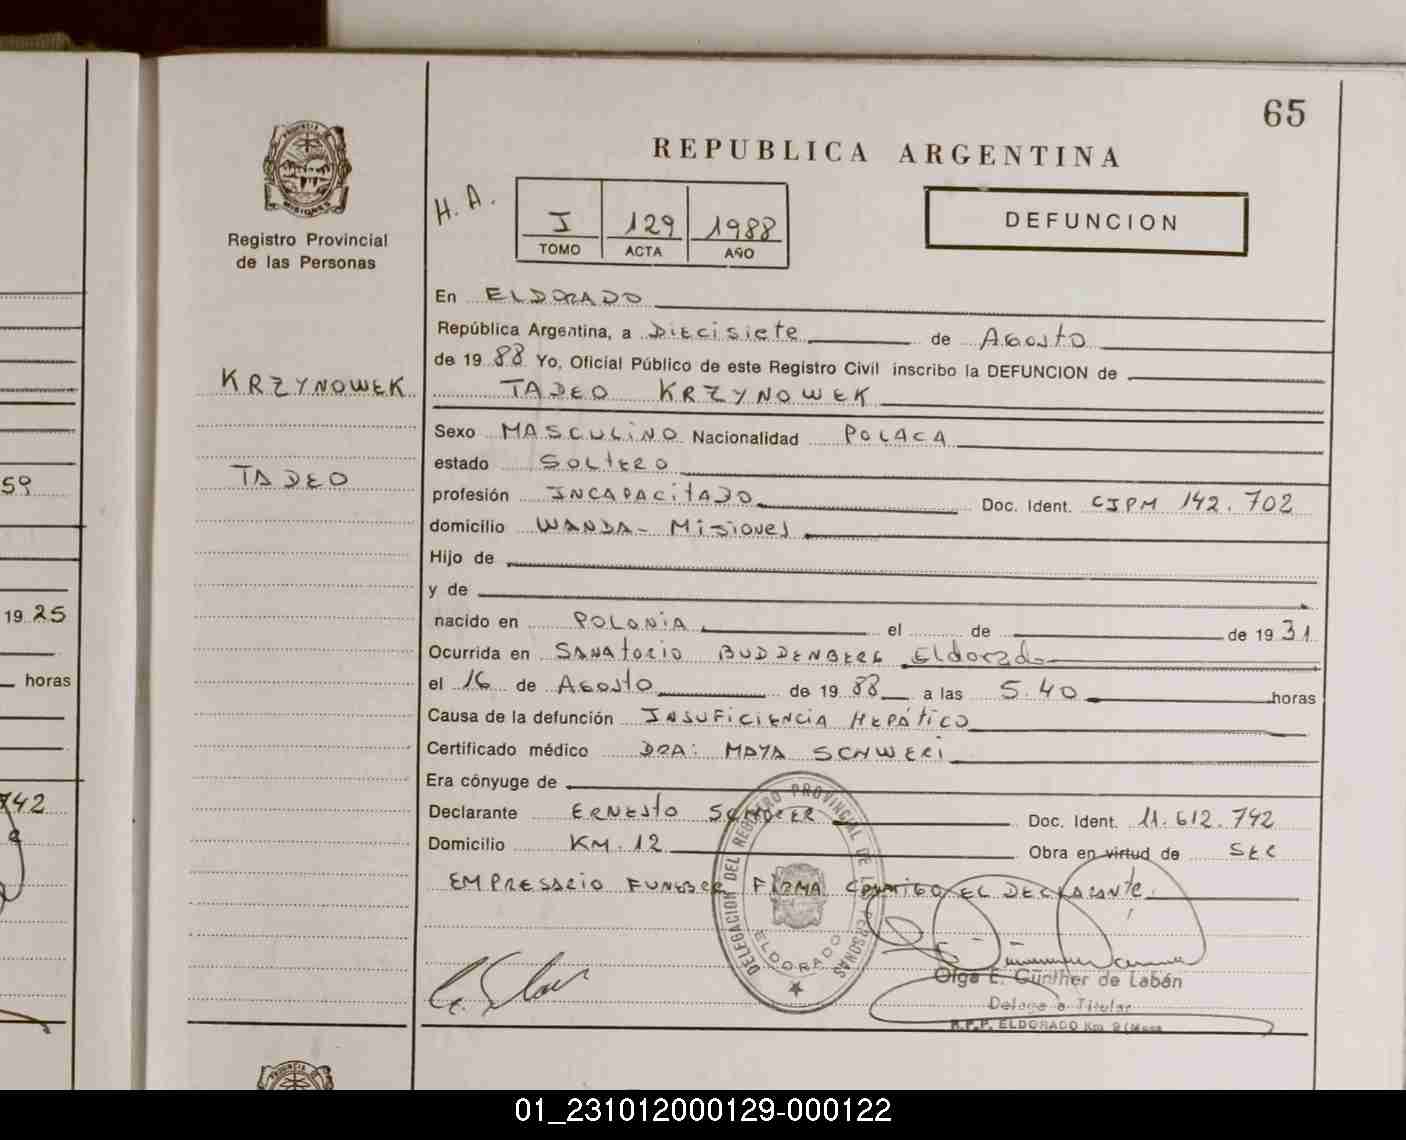 65
REPUBLICA ARGENTINA
PROVINCIA DE
MISIONES
Registro Provincial
de las Personas
H. A.
I 129 1988
TOMO ACTA AÑO
DEFUNCION
KRZYNOWEK
TADEO
En ELDORADO
República Argentina, a Diecisiete de Agosto
de 1988 Yo, Oficial Público de este Registro Civil inscribo la DEFUNCION de
TADEO KRZYNOWEK
Sexo MASCULINO Nacionalidad POLACA
estado SOLTERO
profesión INCAPACITADO Doc. Ident. CIPM 142.702
domicilio WANDA - Misiones
Hijo de
y de
nacido en POLONIA el de de 1931
Ocurrida en SANATORIO BUDDENBERG Eldorado
el 16 de AGOSTO de 1988 a las 5.40 horas
Causa de la defunción INSUFICIENCIA HEPÁTICO
Certificado médico DRA: MAYA SCHWERI
Era cónyuge de
Declarante ERNESTO Doc. Ident. 11.612.742
Domicilio KM. 12 Obra en virtud de SER
EMPRESARIO FUNEBRE FIRMA CONMIGO EL DECLARANTE.
DELEGACION DEL REGISTRO PROVINCIAL DE LAS PERSONAS
ELDORADO
Olga E. Günther de Labán
Delegada Titular
R.P.P. ELDORADO Km 9
59
1925
horas
742
01_231012000129-000122